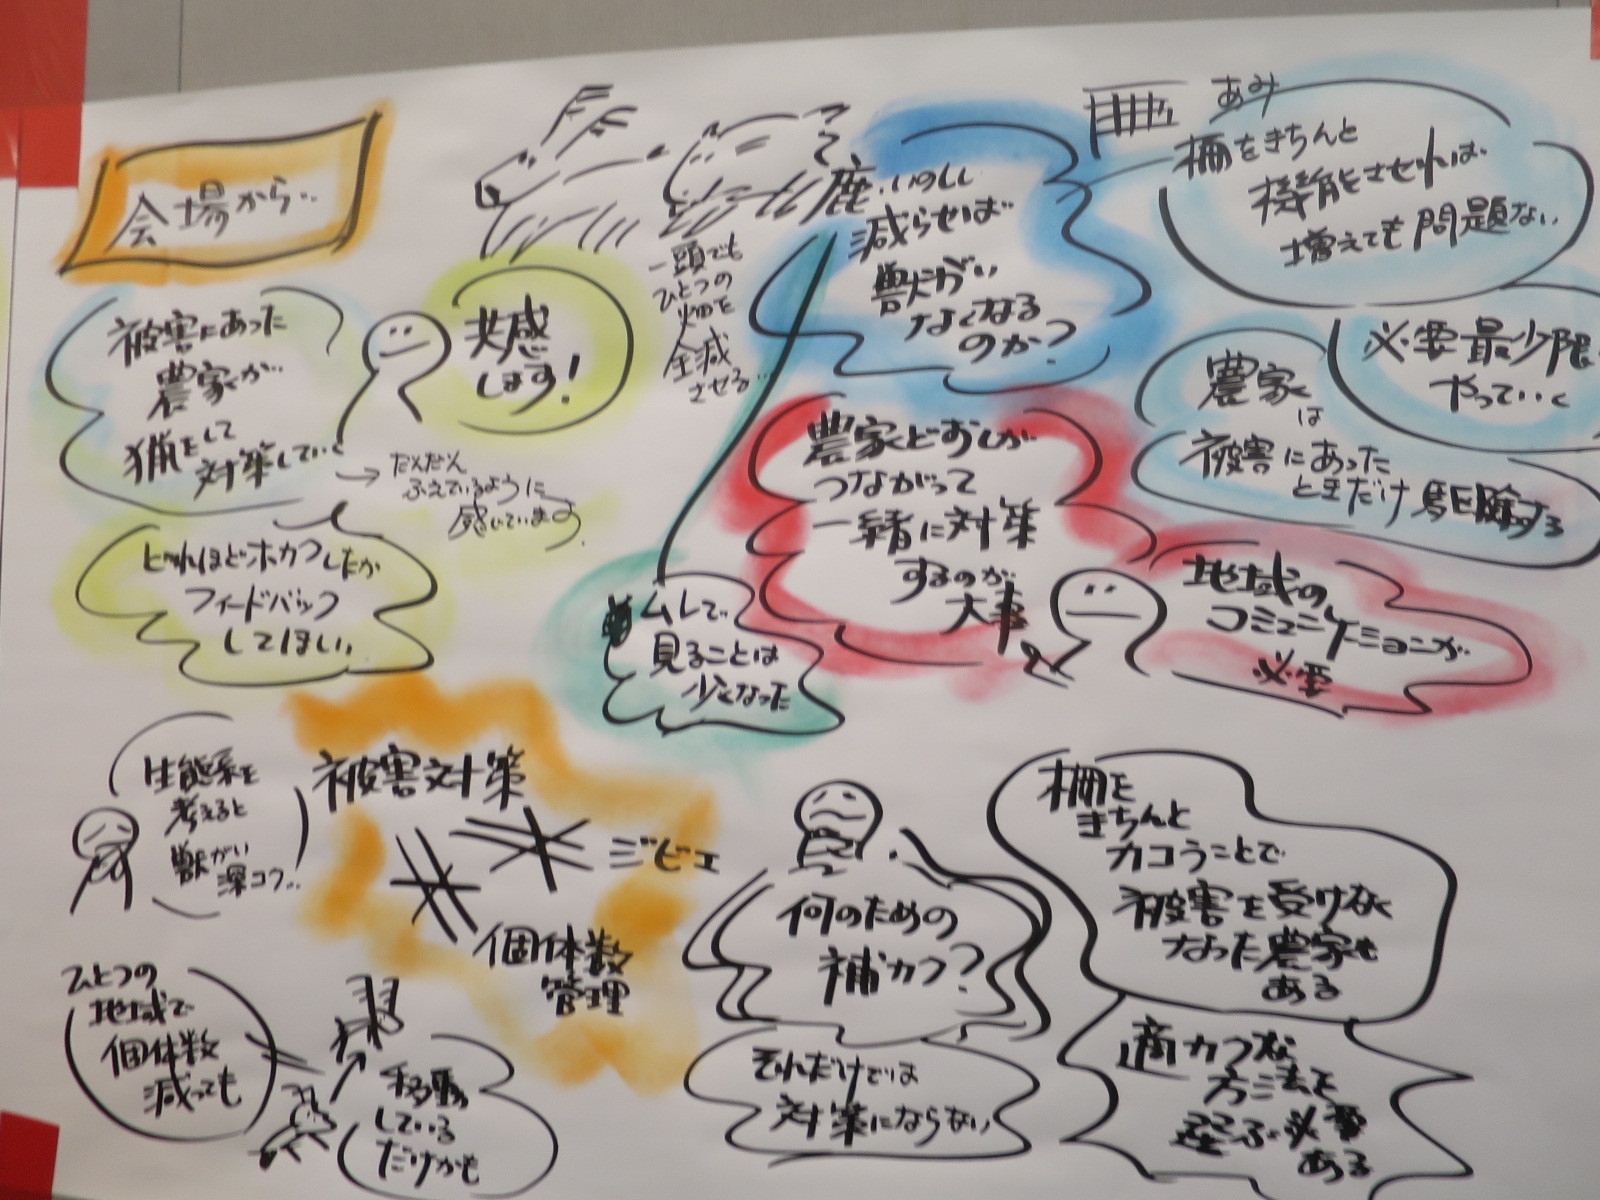 会場から…
被害にあった
農家が
猟をして
対策していく
共感
します!
→だんだん
ふえているように
感じています。
どれほどホカクしたか
フィードバック
してほしい。
一頭でも
ひとつの
畑を
全滅
させる…
鹿、いのしし
減らせば
獣がい
なくなる
のか?
あみ
柵をきちんと
機能させれば
増えても問題ない
必要最少限
やっていく
農家
は
被害にあった
ときだけ駆除する
農家どおしが
つながって
一緒に対策
するのが
大事
地域の
コミュニケーションが
必要
ムレで
見ることは
少くなった
生態系を
考えると
獣がい
深コク…
被害対策
ジビエ
個体数
管理
ひとつの
地域で
個体数
減っても
移動
している
だけかも
何のための
補カク?
それだけでは
対策にならない
柵を
きちんと
カコうことで
被害を受けなく
なった農家も
ある
適カクな
方法を
選ぶ必要
ある